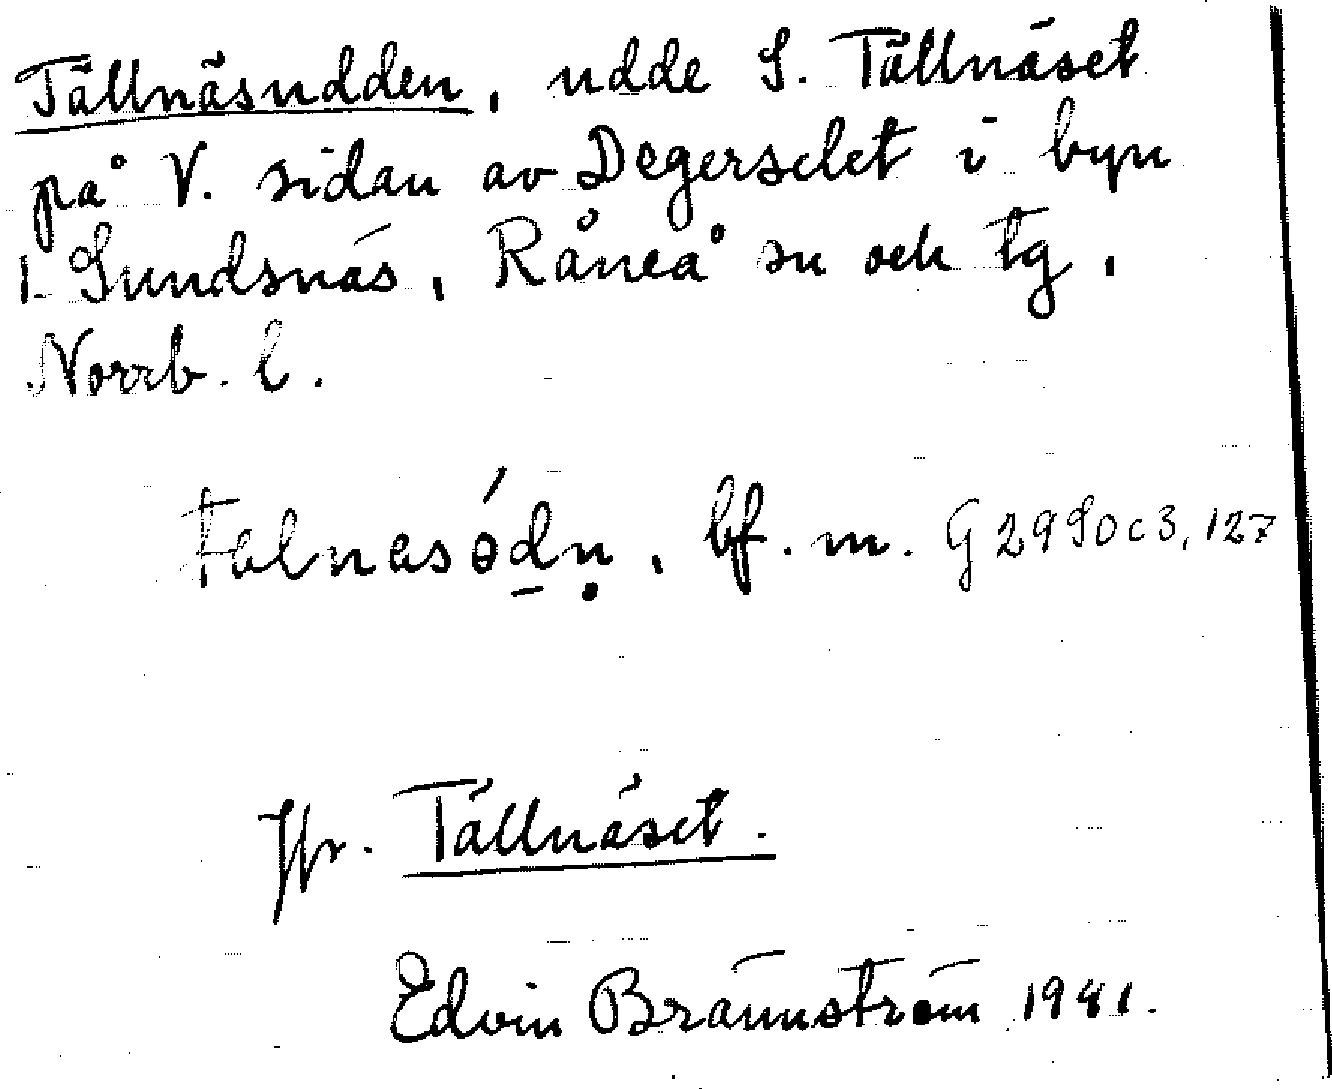 Tällnäsudden, udde S. Tällnäset
på V. sidan av Degerselet i byn
Sundsnäs, Råneå sn och tg,
Norrb. l.
bf. m. G 2990 c 3, 127
Jfr. Tällnäset.
Edvin Brännström 1981.